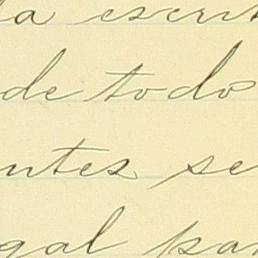 la escrit
de todo
ntes se
gal par